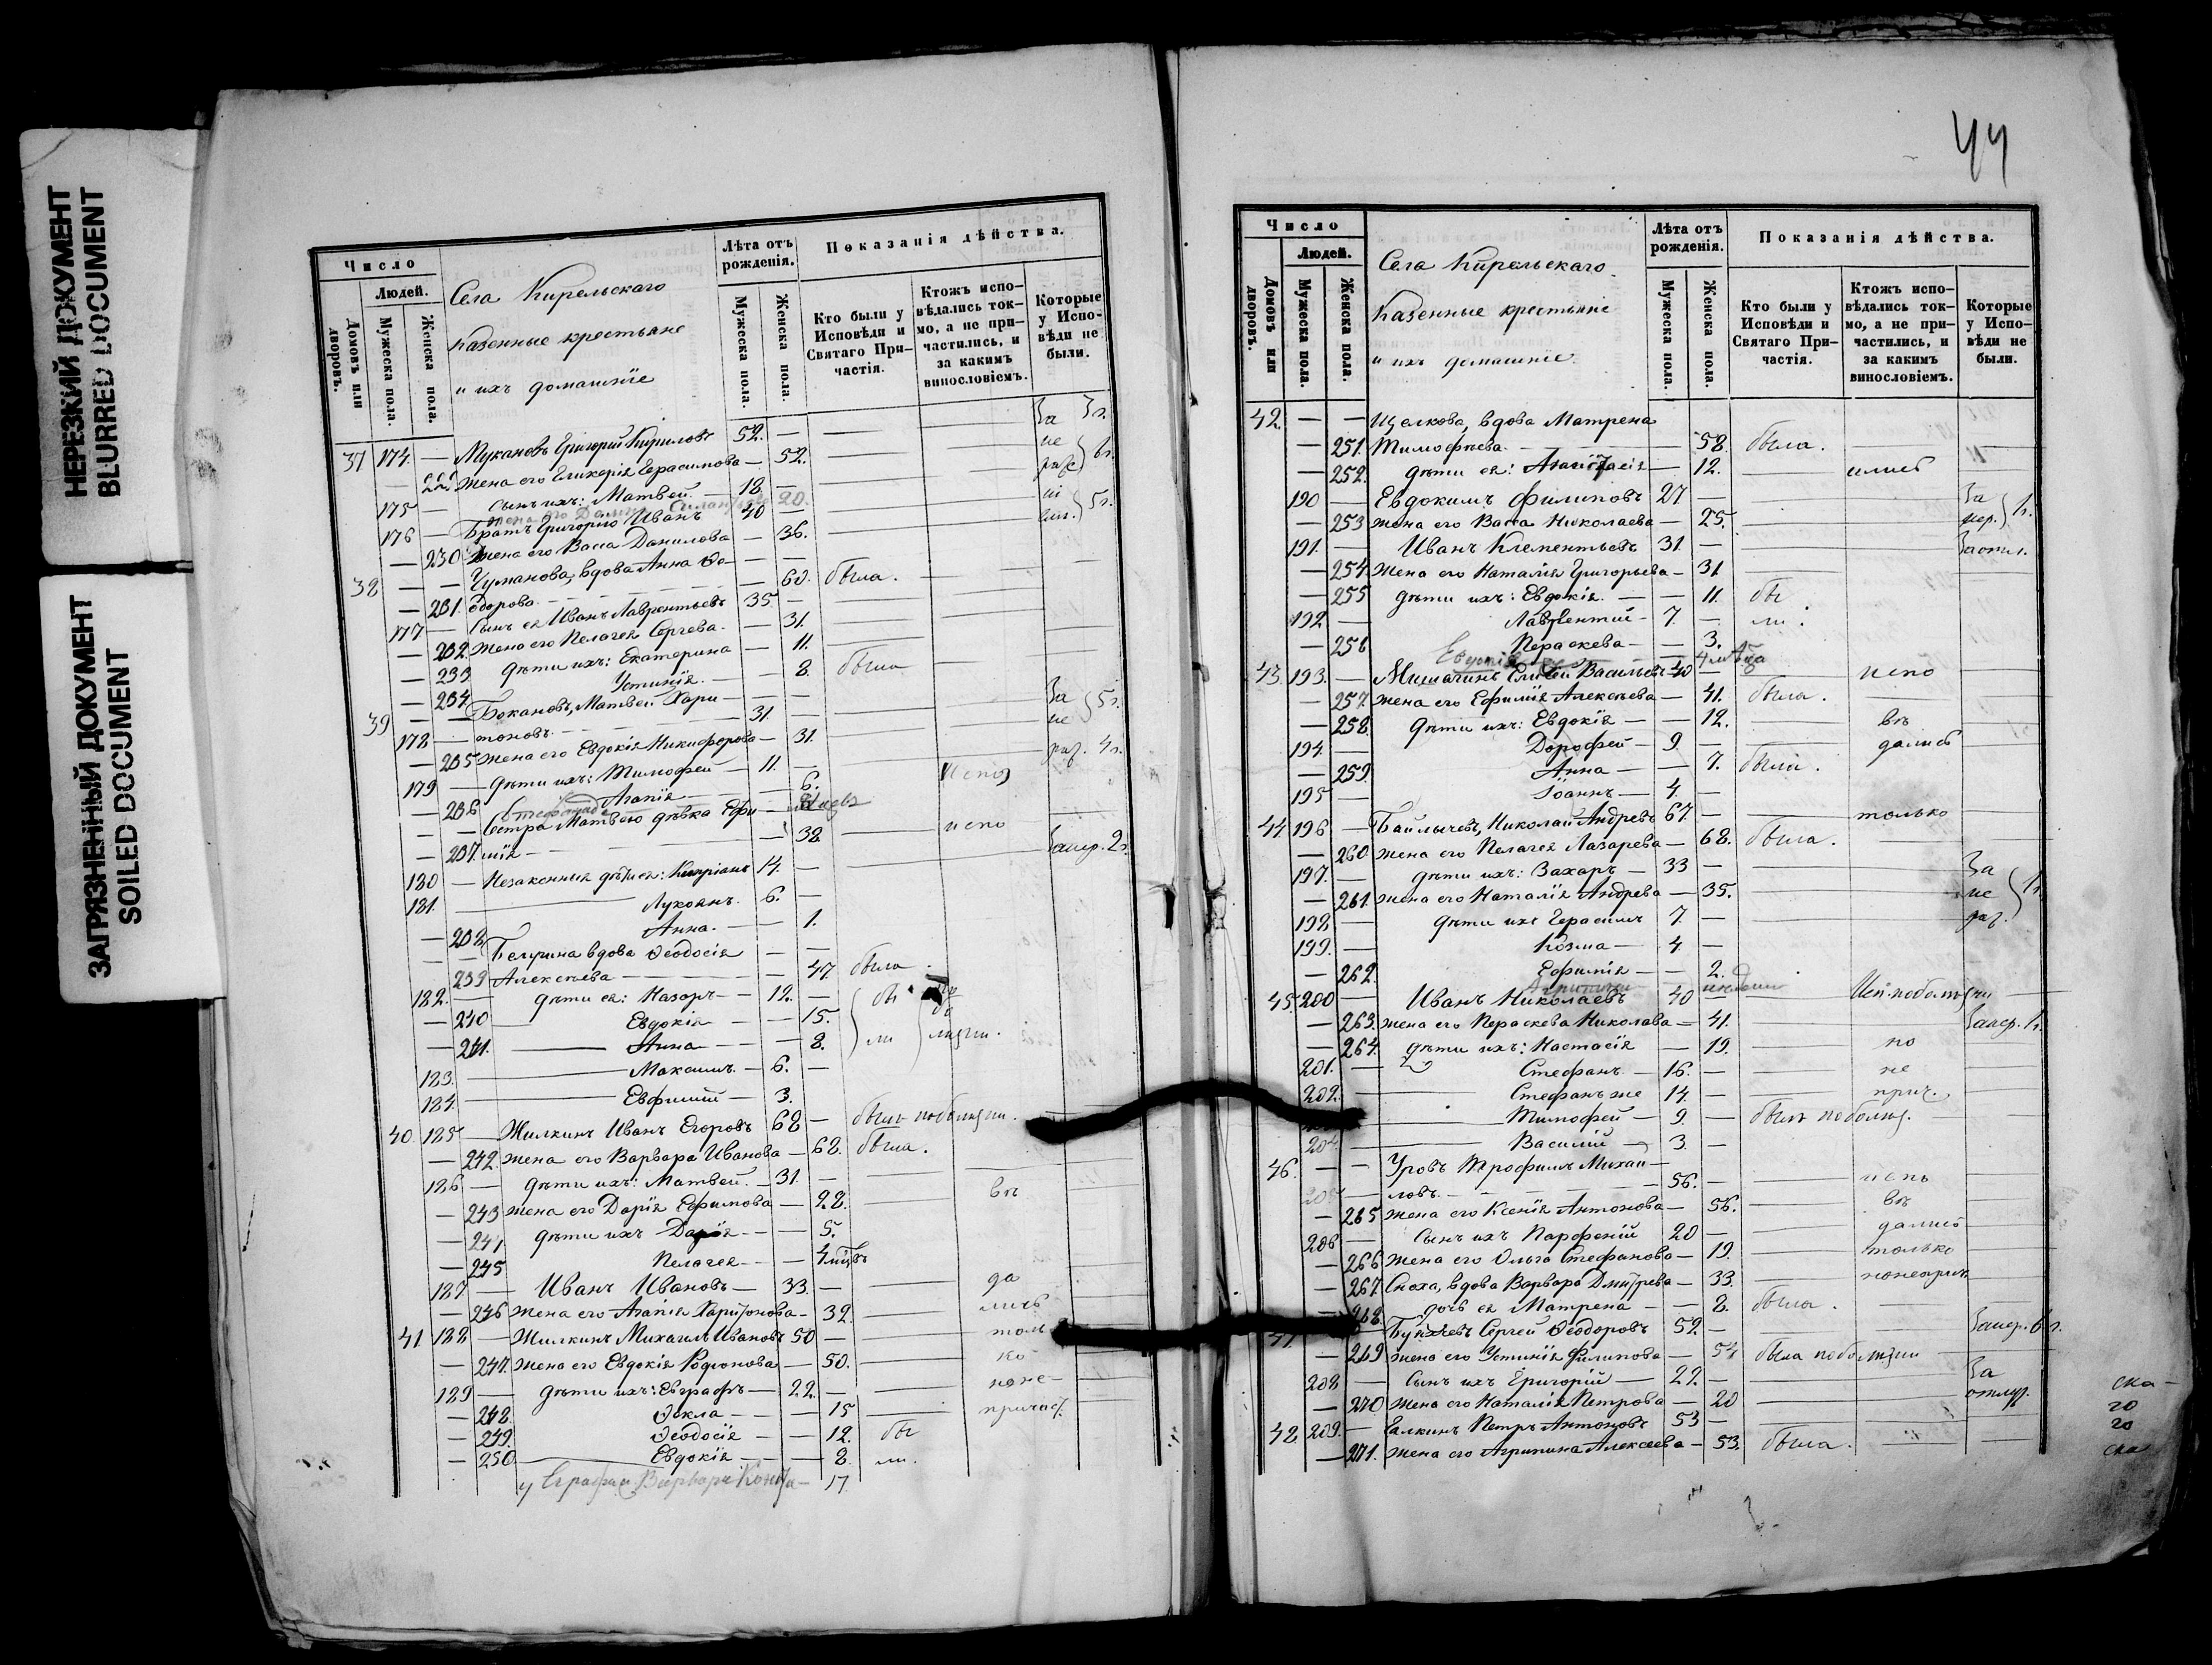 НЕРЕЗКИЙ ДОКУМЕНТ
BLURRED DOCUMENT
ЗАГРЯЗНЕННЫЙ ДОКУМЕНТ
SOILED DOCUMENT
Число
Людей.
Домовъ или дворовъ.
Мужеска пола.
Женска пола.
Села Кирельскаго
казенные крестьяне
и ихъ домашніе
Лѣта отъ рожденія.
Мужеска пола.
Женска пола.
Показанія дѣйства.
Кто были у Исповѣди и Святаго Причастія.
Ктожъ исповѣдались токмо, а не причастились, и за какимъ винословіемъ.
Которые у Исповѣди не были.
37 174. — Мукановъ Григорій Кириловъ 52. — За 3 г.
— 229 жена его Гликерія Герасимова — 52. не 6 г.
175 — Сынъ ихъ: Матвей. — 18. —
20.
176 — Братъ Григорію Иванъ 40 — 5 г.
— 230 Жена его Васа Данилова — 36.
38 — — Чуманова, вдова Анна Ѳе— —
— 231. одорова. — 60. была.
177 — Сынъ ея Иванъ Лаврентьевъ 35. —
— 232. Жена его Пелагея Сергева. — 31.
— 233 дѣти ихъ: Екатерина — 11.
— 234. Устинія. — — 8. была
39 — — Бокановъ, Матвей Хари—
178 — тоновъ. — 31. — За не 5 г.
— 235 Жена его Евдокія Никифорова — 31. раз. 4 г.
179 — дѣти ихъ: Тимофей — 11. —
— 236 Агапія — 6.
— — Сестра Матвею дѣвка Ефи—
— 237. мія — — 38. испо
180 — Незаконныя дѣти ея: Кипріанъ 14. — Занер. 2 г.
181. — Лукоянъ. 6. —
— 238 Анна. — — 1.
— — вдова Ѳеодосія —
— 239 Алексѣева — — 47 была.
182. — дѣти ея: Назаръ — 12. — бы
— 240 — Евдокія — — 15.
— 241. — Анна — — 8. ли
183. — Максимъ. — 6. —
184. — Евфимій — 3.
40. 185 — Жилкинъ Иванъ Егоровъ 68 — былъ
— 242. жена его Варвара Иванова — 68. была.
186 — дѣти ихъ: Матвей. — 31. —
— 243 жена его Дарія Ефимова — 28. вѣ
— 244 дѣти ихъ Дарія — — 5.
— 245 Пелагея — — 4 мѣ
187 — Иванъ Ивановъ — 33. — да
— 246 жена его Агапія Харитонова — 32. лись
41 188 — Жилкинъ Михаилъ Ивановъ 50 — толь
— 247. жена его Евдокія Родионова — 50. ко
189 — дѣти ихъ: Евграфъ — 22. — но не
— 248. Ѳекла — — 15 причас.
— 249. Ѳеодосія — — 12. бы
— 250. — Евдокія — — 8. ли.
у Варвара 17
44
Число
Людей.
Домовъ или дворовъ.
Мужеска пола.
Женска пола.
Села Кирельскаго.
Казенные крестьяне
и ихъ домашніе.
Лѣта отъ рожденія.
Мужеска пола.
Женска пола.
Показанія дѣйства.
Кто были у Исповѣди и Святаго Причастія.
Ктожъ исповѣдались токмо, а не причастились, и за какимъ винословіемъ.
Которые у Исповѣди не были.
42. — — Щелкова, вдова Матрена
— 251. Тимофѣева. — — 58. была.
— 252. дѣти ея: — 12.
190 — Евдокимъ Филиповъ 27 — За
— 253 жена его Васа Николаева — 25. нер. 1 г.
191. — Иванъ Клементьевъ 31. —
— 254. Жена его Наталія Григорьева — 31
— 255 дѣти их: Евдокія. — — 11. бы
192 — Лаврентий — 7. — ли.
— 256 Параскева — — 3.
43. 193. — Васильевъ 40 — испо
— 257. жена его Ефимія Алексѣева — 41. была.
— 258. дѣти ихъ: Евдокія — — 12. вѣ
194. — Дорофей — 9. — дались
— 259. Анна — — 7. была.
195 — Іоаннъ — 4. —
44. 196 — Байлычевъ, Николай Андревъ 67. — только
— 260. жена его Пелагея Лазарева — 68. была.
197. — дѣти ихъ: Захаръ — 33 — За
— 261. жена его Наталія Андрева — 35. не 1 г.
198 — дѣти ихъ Герасимъ 7. — раз.
199. — Козма — 4. —
— 262. Ефимія — — 2.
45. 200 — Иванъ Николаевъ 40 —
— 263. жена его Параскева Николава — 41. Занер. 1 г.
— 264. дѣти ихъ: Настасія — 19. но
201. — Стефанъ. — 16. — не
202. — Стефанъ же 14. — прич.
— Тимофей — 9. — былъ
204 — Василій — 3. —
46. — — Уровъ Трофимъ Михай—
205 — ловъ. — 56. —
— 265 жена его Ксенія Антонова — 56. вѣ
206 — Сынъ ихъ Парфеній 20 — дались
— 266 жена его Ольга Стефанова — 19. только
— 267. Сноха, вдова Варвара Дмитрева — 33.
— 268. дочь ея Матрена — — 8. была.
47. — Сергей Ѳеодоровъ 52. — Занер. 6 г.
— 269 жена его Устинія Филипова — 54 была
208 — Сынъ ихъ Григорій — 22. — За
— 270 жена его Наталія Петрова — 20 отлуч.
48. 209. — Галкинъ Петръ Антоновъ 53 —
— 271. Жена его Агрипина Алексеева — 53. была.
ска—
го
го
ска